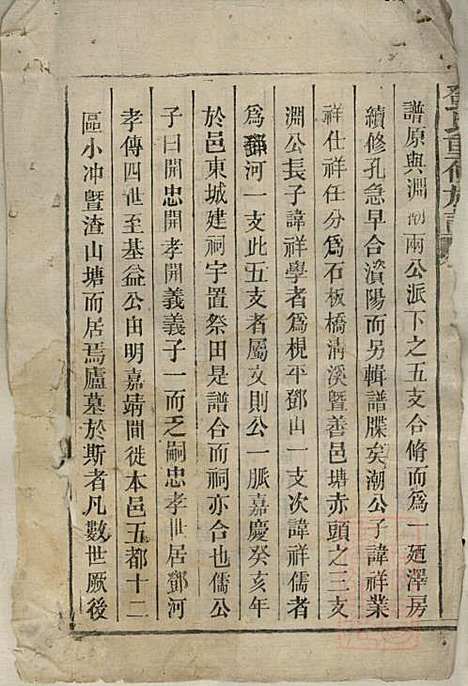 鄧氏重修族譜
譜原與淵潮兩公派下之五支合脩而爲一廼澤房
續修孔急早合資陽而另輯譜牒矣潮公子諱祥業
祥仕祥任分爲石板橋淸溪曁善邑塘赤頭之三支
淵公長子諱祥學者爲梘平鄧山一支次諱祥儒者
爲鄧河一支此五支者屬文則公一脈嘉慶癸亥年
於邑東城建祠宇置祭田是譜合而祠亦合也儒公
子曰開忠開孝開義義子一而乏嗣忠孝世居鄧河
孝傳四世至基益公由明嘉靖間徙本邑五都十二
區小冲曁渣山塘而居焉廬墓於斯者凡數世厥後